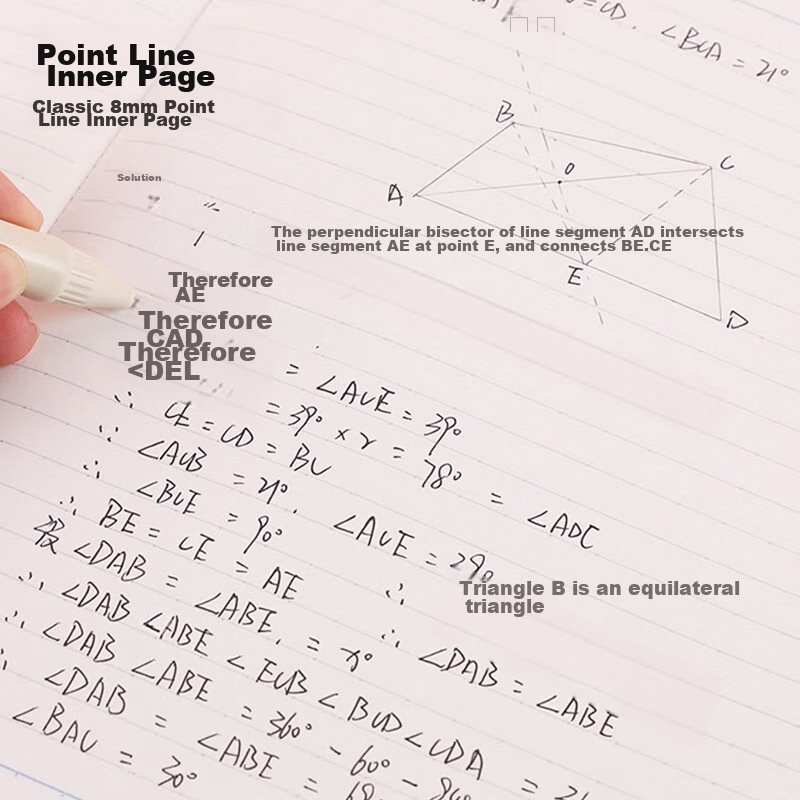 Point Line
Inner Page
Classic 8mm Point
Line Inner Page
=CD. ∠BCA = 21°
B
C
O
A
E
D
Solution
The perpendicular bisector of line segment AD intersects
line segment AE at point E, and connects BE.CE
Therefore
AE
Therefore
CAD
Therefore
<DEL
= ∠ACE = 39°
= 39° × 2 = 78° = ∠ADC
∴ CE = CD = BC
∵ ∠ACB = 21°. ∠ACE = 39°
∴ ∠BCE = 90°
∴ Triangle B is an equilateral
triangle
∴ BE = CE = AE ∴ ∠DAB = ∠ABE
设 ∠DAB = ∠ABE. = x°
∴ ∠DAB ∠ABE < ECB < BCD < CDA
∴ ∠DAB ∠ABE = 360° - 60° -
∴ ∠DAB = ∠ABE =
∠BAC = 30°